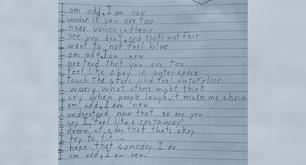 I am odd, I am new
I wonder if you are too
I hear voices in the air
I see you don't, and that's not fair
I want to not feel blue
I am odd, I am new
I pretend that you are too
I feel like a boy in outerspace
I touch the stars and feel out of place
I worry what others might think
I cry when people laugh, it makes me shrink
I am odd, I am new
I understand now that so are you
I say I, feel like a castaway
I dream of a day that that's okay
I try to fit in
I hope that someday I do
I am odd, I am new.